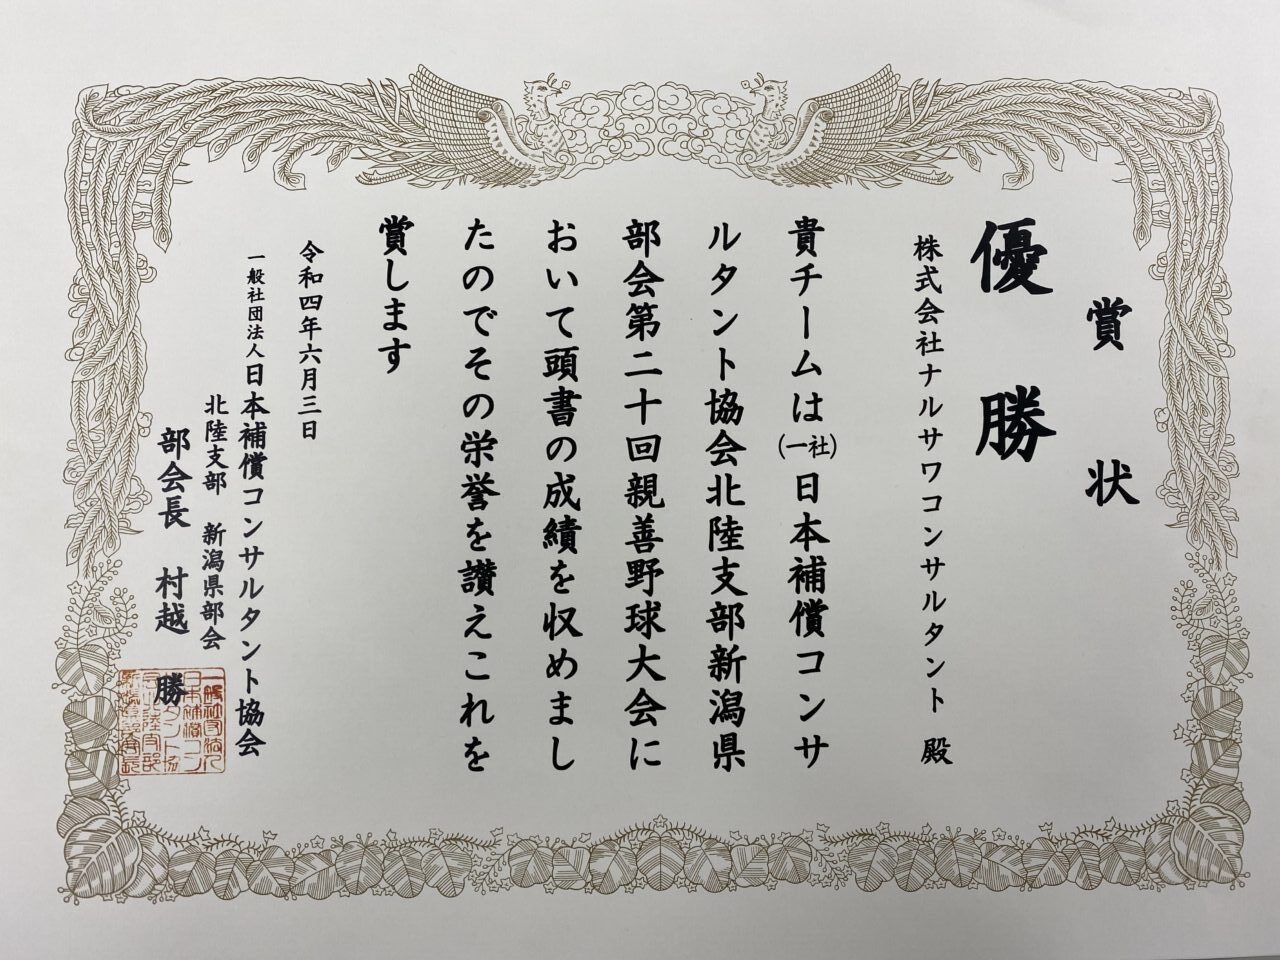 賞状
優勝
株式会社ナルサワコンサルタント 殿
貴チームは(一社)日本補償コンサ
ルタント協会北陸支部新潟県
部会第二十回親善野球大会に
おいて頭書の成績を収めまし
たのでその栄誉を讃えこれを
賞します
令和四年六月三日
一般社団法人日本補償コンサルタント協会
北陸支部 新潟県部会
部会長 村越 勝